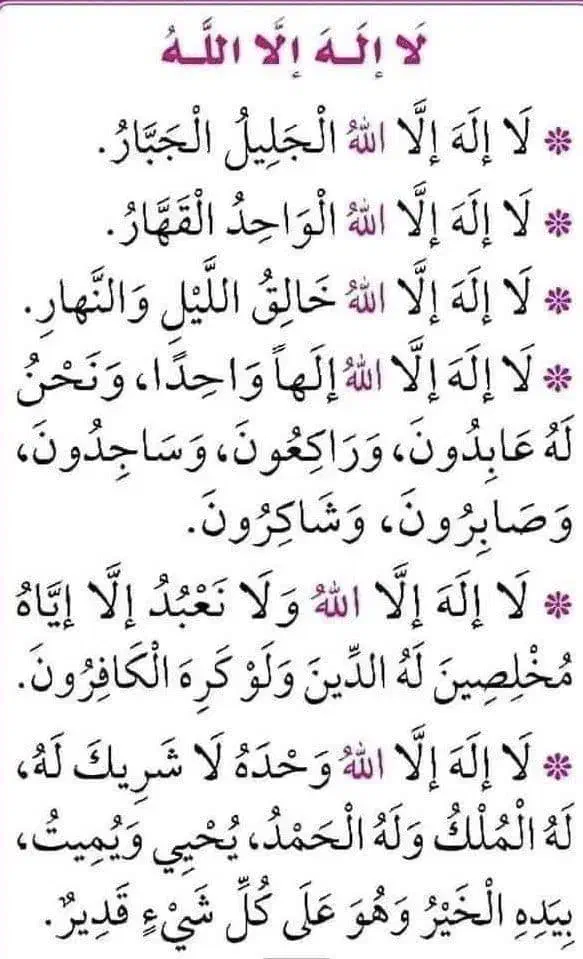 لَا إِلَـهَ إِلَّا اللَّـهُ
❋ لَا إِلَهَ إِلَّا اللهُ الْجَلِيلُ الْجَبَّارُ.
❋ لَا إِلَهَ إِلَّا اللهُ الْوَاحِدُ الْقَهَّارُ.
❋ لَا إِلَهَ إِلَّا اللهُ خَالِقُ اللَّيْلِ وَالنَّهارِ.
❋ لَا إِلَهَ إِلَّا اللهُ إِلَهاً وَاحِدًا، وَنَحْنُ
لَهُ عَابِدُونَ، وَرَاكِعُونَ، وَسَاجِدُونَ،
وَصَابِرُونَ، وَشَاكِرُونَ.
❋ لَا إِلَهَ إِلَّا اللهُ وَلَا نَعْبُدُ إِلَّا إِيَّاهُ
مُخْلِصِينَ لَهُ الدِّينَ وَلَوْ كَرِهَ الْكَافِرُونَ.
❋ لَا إِلَهَ إِلَّا اللهُ وَحْدَهُ لَا شَرِيكَ لَهُ،
لَهُ الْمُلْكُ وَلَهُ الْحَمْدُ، يُحْيِي وَيُمِيتُ،
بِيَدِهِ الْخَيْرُ وَهُوَ عَلَى كُلِّ شَيْءٍ قَدِيرٌ.